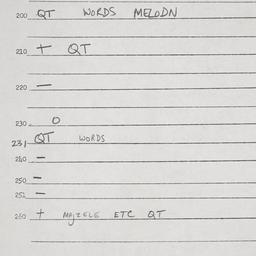 200 QT WORDS MELODN
210 + QT
220 —
230 O
231 QT WORDS
240 —
250 —
252 —
260 + ETC QT